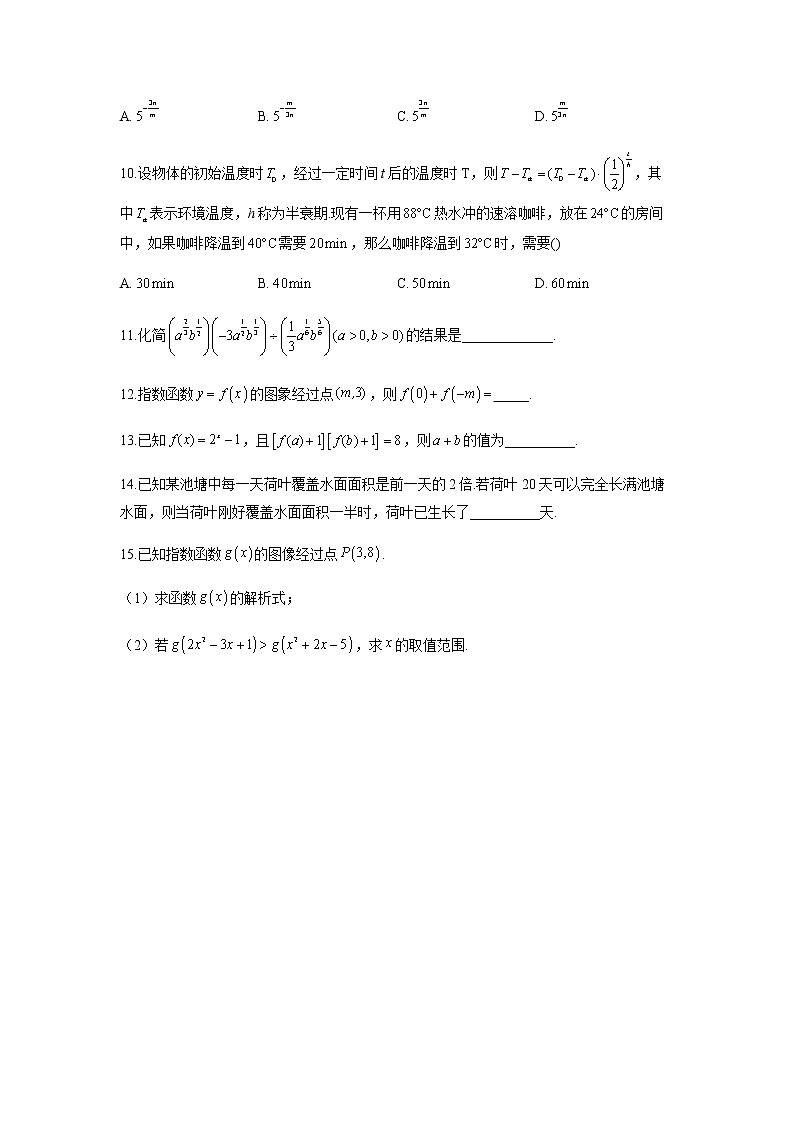 A. $5^{-\frac{3n}{m}}$ B. $5^{-\frac{m}{3n}}$ C. $5^{\frac{3n}{m}}$ D. $5^{\frac{m}{3n}}$
10.设物体的初始温度时 $T_0$，经过一定时间 t 后的温度时 T，则 $T-T_a=(T_0-T_a)\cdot\left(\frac{1}{2}\right)^{\frac{t}{h}}$，其
中 $T_a$ 表示环境温度，h 称为半衰期.现有一杯用 88°C 热水冲的速溶咖啡，放在 24°C 的房间
中，如果咖啡降温到 40°C 需要 20min，那么咖啡降温到 32°C 时，需要()
A. 30min B. 40min C. 50min D. 60min
11.化简 $\left(a^{\frac{2}{3}}b^{\frac{1}{2}}\right)\left(-3a^{\frac{1}{2}}b^{\frac{1}{3}}\right)\div\left(\frac{1}{3}a^{\frac{1}{6}}b^{\frac{5}{6}}\right)(a>0,b>0)$ 的结果是_____________.
12.指数函数 $y=f(x)$ 的图象经过点 $(m,3)$，则 $f(0)+f(-m)=$_____.
13.已知 $f(x)=2^x-1$，且 $[f(a)+1][f(b)+1]=8$，则 $a+b$ 的值为__________.
14.已知某池塘中每一天荷叶覆盖水面面积是前一天的 2 倍.若荷叶 20 天可以完全长满池塘
水面，则当荷叶刚好覆盖水面面积一半时，荷叶已生长了__________天.
15.已知指数函数 $g(x)$ 的图像经过点 $P(3,8)$.
（1）求函数 $g(x)$ 的解析式；
（2）若 $g(2x^2-3x+1)>g(x^2+2x-5)$，求 $x$ 的取值范围.